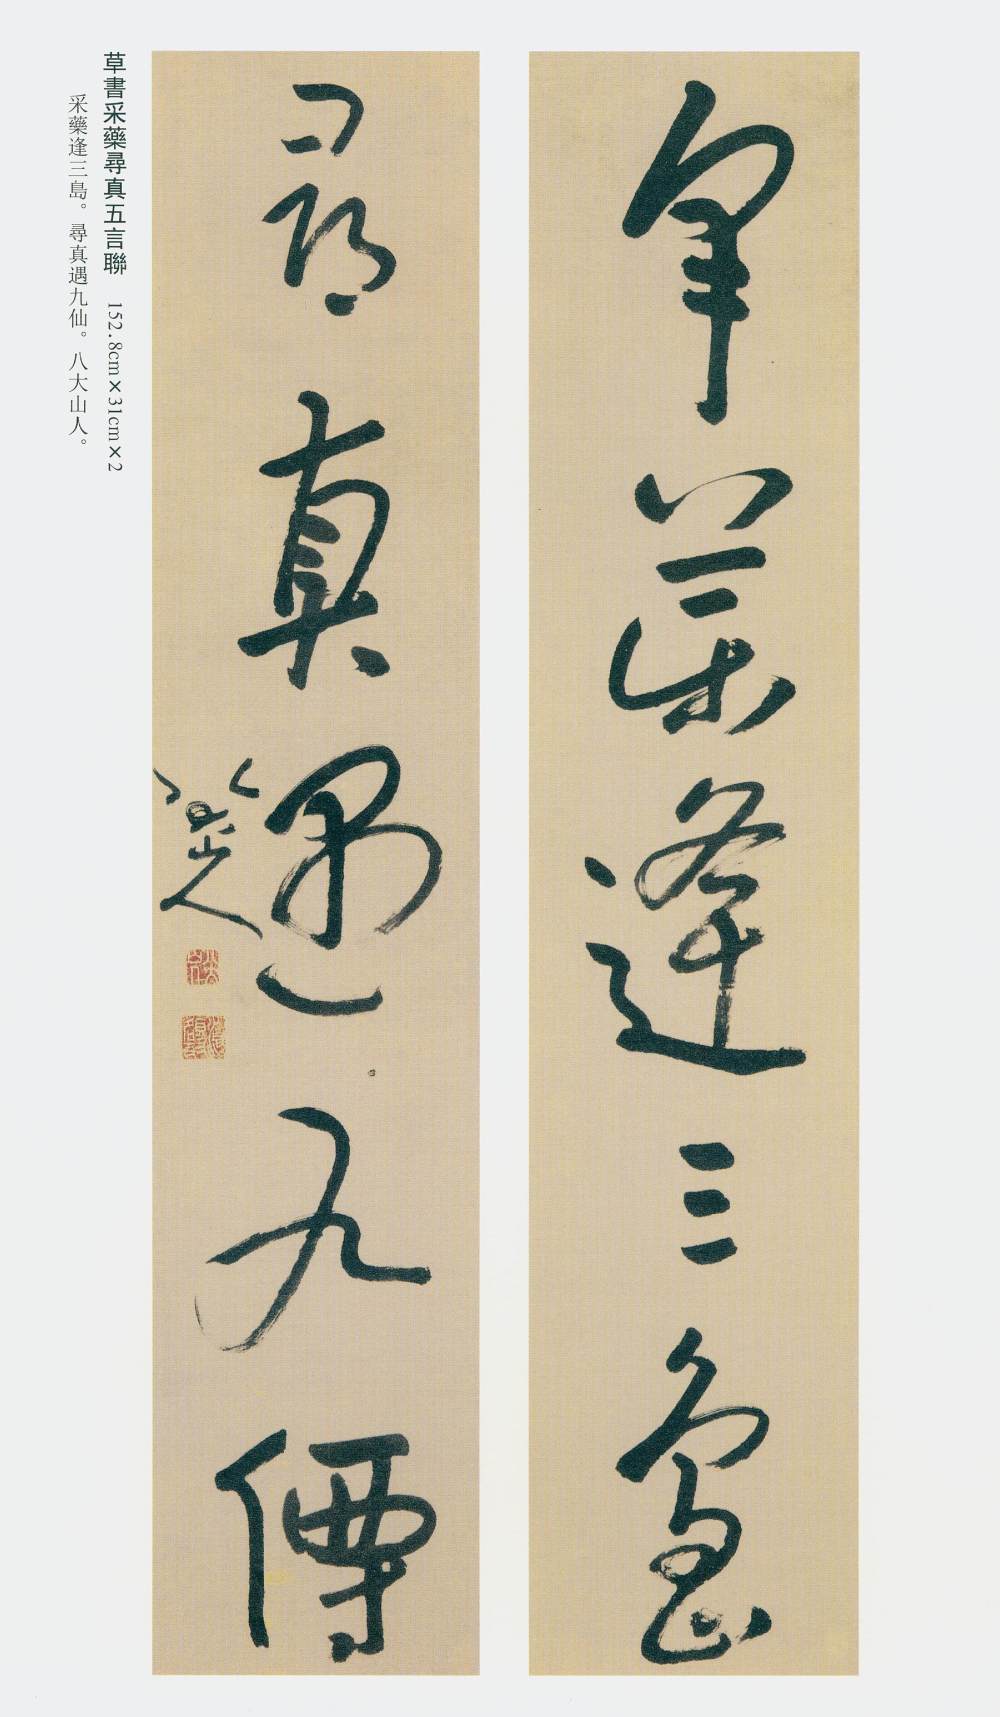 采藥逢三島
尋真遇九僊
八大山人
草書采藥尋真五言聯 152.8cm×31cm×2
采藥逢三島。尋真遇九仙。八大山人。